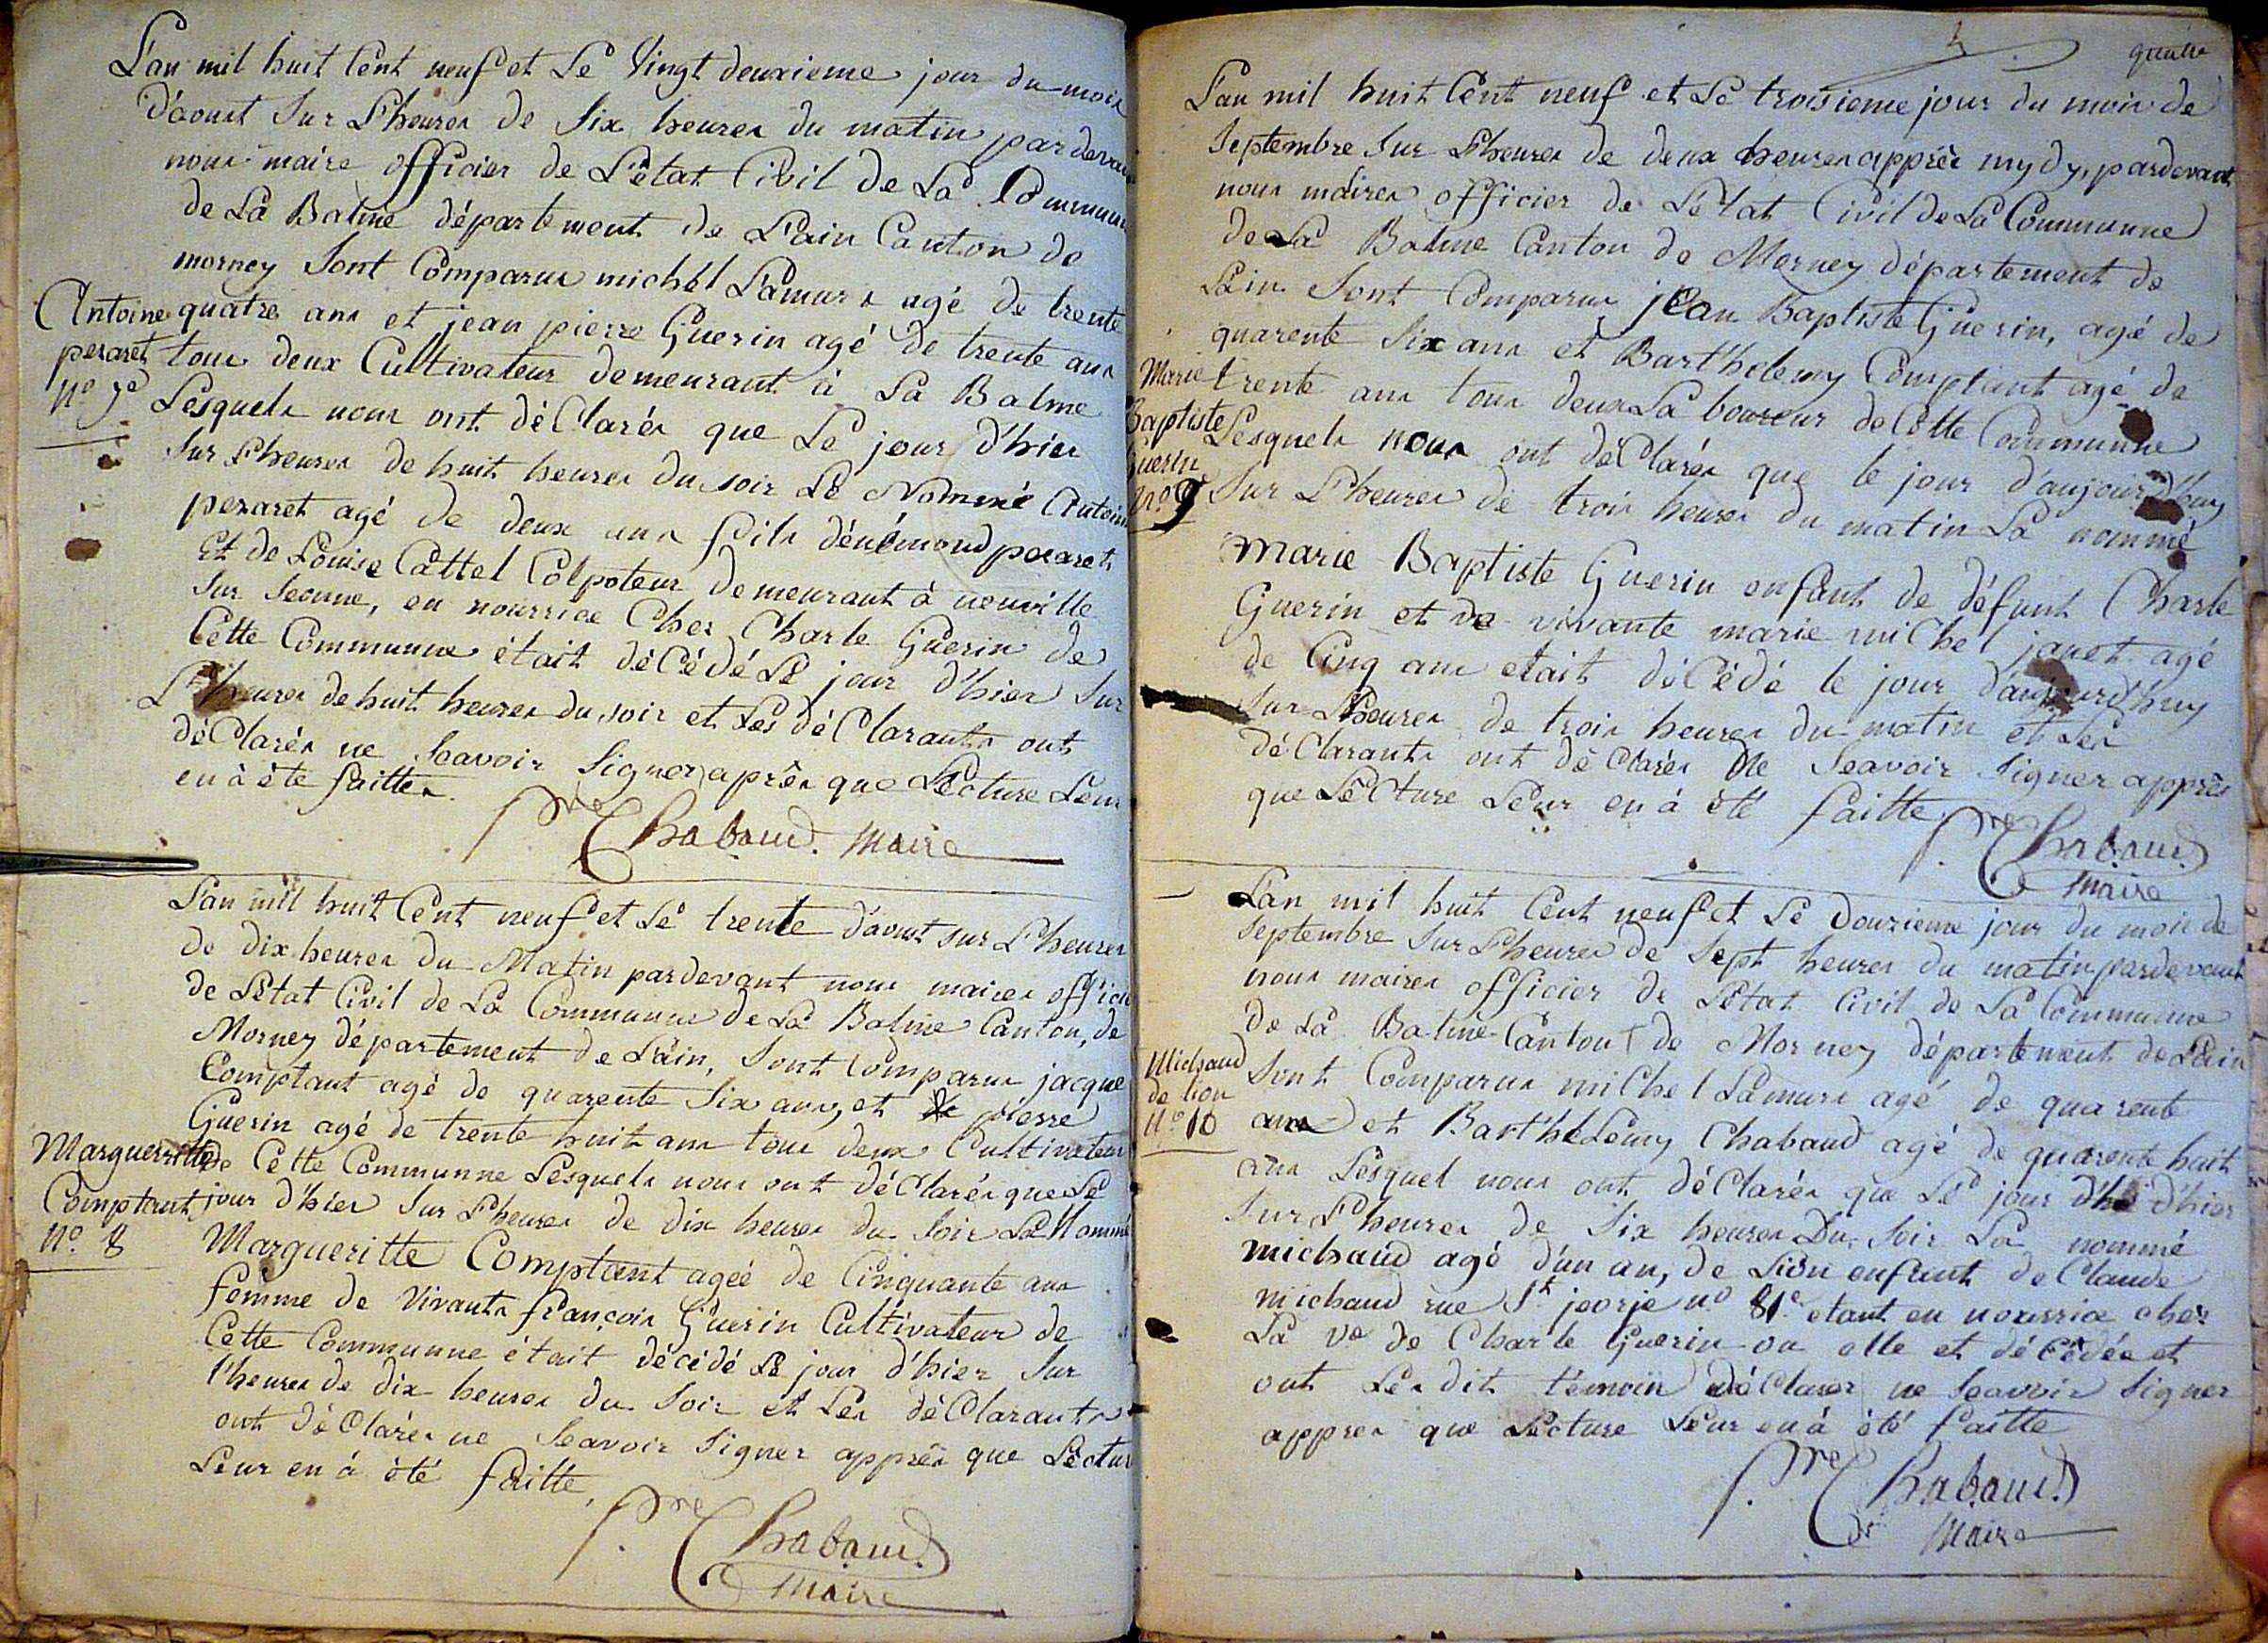 L'an mil huit Cent neuf et Le Vingt deuxieme jour du mois
d'aoust Sur L'heures de Six heures du matin pardevant
nous maire officier de L'état Civil de La Commune
de La Balme département de L'ain Canton de
morney Sont Comparus michel Lamurs agé de trente
quatre ans et jean pierre Guerin agé de trente ans
tous deux Cultivateur demeurant à La Balme
Lesquels nous ont déClarés que Le jour d'hier
Sur L'heures de huit heures du soir Le Nommé Antoine
peraret agé de deux ans fils d'énémond peraret
Et de Louise Cattel Colpoteur demeurant à neuville
Sur Seonne, en nourrice Ches Charle Guerin de
Cette Commune était déCédé Le jour d'hier Sur
L'heures de huit heures du soir et Les déClarants ont
déClarés ne Seavoir Signer après que Lecture Leur
en à été faittes.
Antoine
peraret
N° 7e
Pre Chabaud. Maire
L'an mil huit Cent neuf et Le trente d'aoust sur L'heures
de dix heures du Matin pardevant nous maires officier
de L'état Civil de La Commune de La Balme Canton, de
Morney département de L'ain, Sont Comparus jacque
Comptant agé de quarente Six ans, et pierre
Guerin agé de trente huit ans tous deux Cultivateur
de Cette Communne Lesquels nous ont déClarés que Le
jour d'hier Sur L'heures de dix heures du Soir La Nommé
Margueritte Comptant ageé de Cinquante ans
femme de Vivants françois Guerin Cultivateur de
Cette Communne était décédé Le jour d'hier Sur
l'heures de dix heures du Soir et Les déClarants
ont déClarés ne Seavoir Signer apprés que Lectur
Leur en à été faitte,
Margueritte
Comptant
N° 8
Pre Chabaud
Maire
4 quatre
L'an mil huit Cent neuf et Le troisieme jour du mois de
Septembre Sur L'heures de deux heures apprés mydy, pardevant
nous maires officier de L'état Civil de La Communne
de La Balme Canton de Morney département de
L'ain Sont Comparus jean Baptiste Guerin, agé de
quarente Six ans et Barthelemy Comptant agé de
trente ans tous deux La boureur de Cette Communne
Lesquels nous ont déClarés que le jour d'aujourd'huy
Sur L'heures de trois heures du matin La nommé
Marie Baptiste Guerin enfant de défunt Charle
Guerin et de vivante marie michel janet agé
de Cinq ans etait déCédé le jour d'aujourd'huy
Sur L'heures de trois heures du matin et Les
déClarants ont déClarés Ne Seavoir Signer apprés
que LeCture Leur en à été faitte.
Marie
Baptiste
Guerin
N° 9
Pre Chabaud
Maire
L'an mil huit Cent neuf et Le Douzieme jour du mois de
Septembre Sur L'heures de Sept heures du matin pardevant
nous maires officier de L'état Civil de La Communne
De La Balme Canton de Morney département de L'ain
Sont Comparus michel Lamurs agé de quarente
ans et Barthéleemy Chabaud agé de quarente huit
ans Lesquel nous ont déClarés que Le jour d'hier
Sur L'heures de Six heures Du Soir La nommé
michaud agé d'un an, de Lion enfant de Claude
michaud rue St jeorje n° 81e etant en nourrice chez
La ve de Charle Guerin ou elle et déCédée et
ont Les dit témoin déClarer ne Seavoir Signer
appres que Lecture Leur en à été faitte
Michaud
de lion
N° 10
Pre Chabaud
Maire